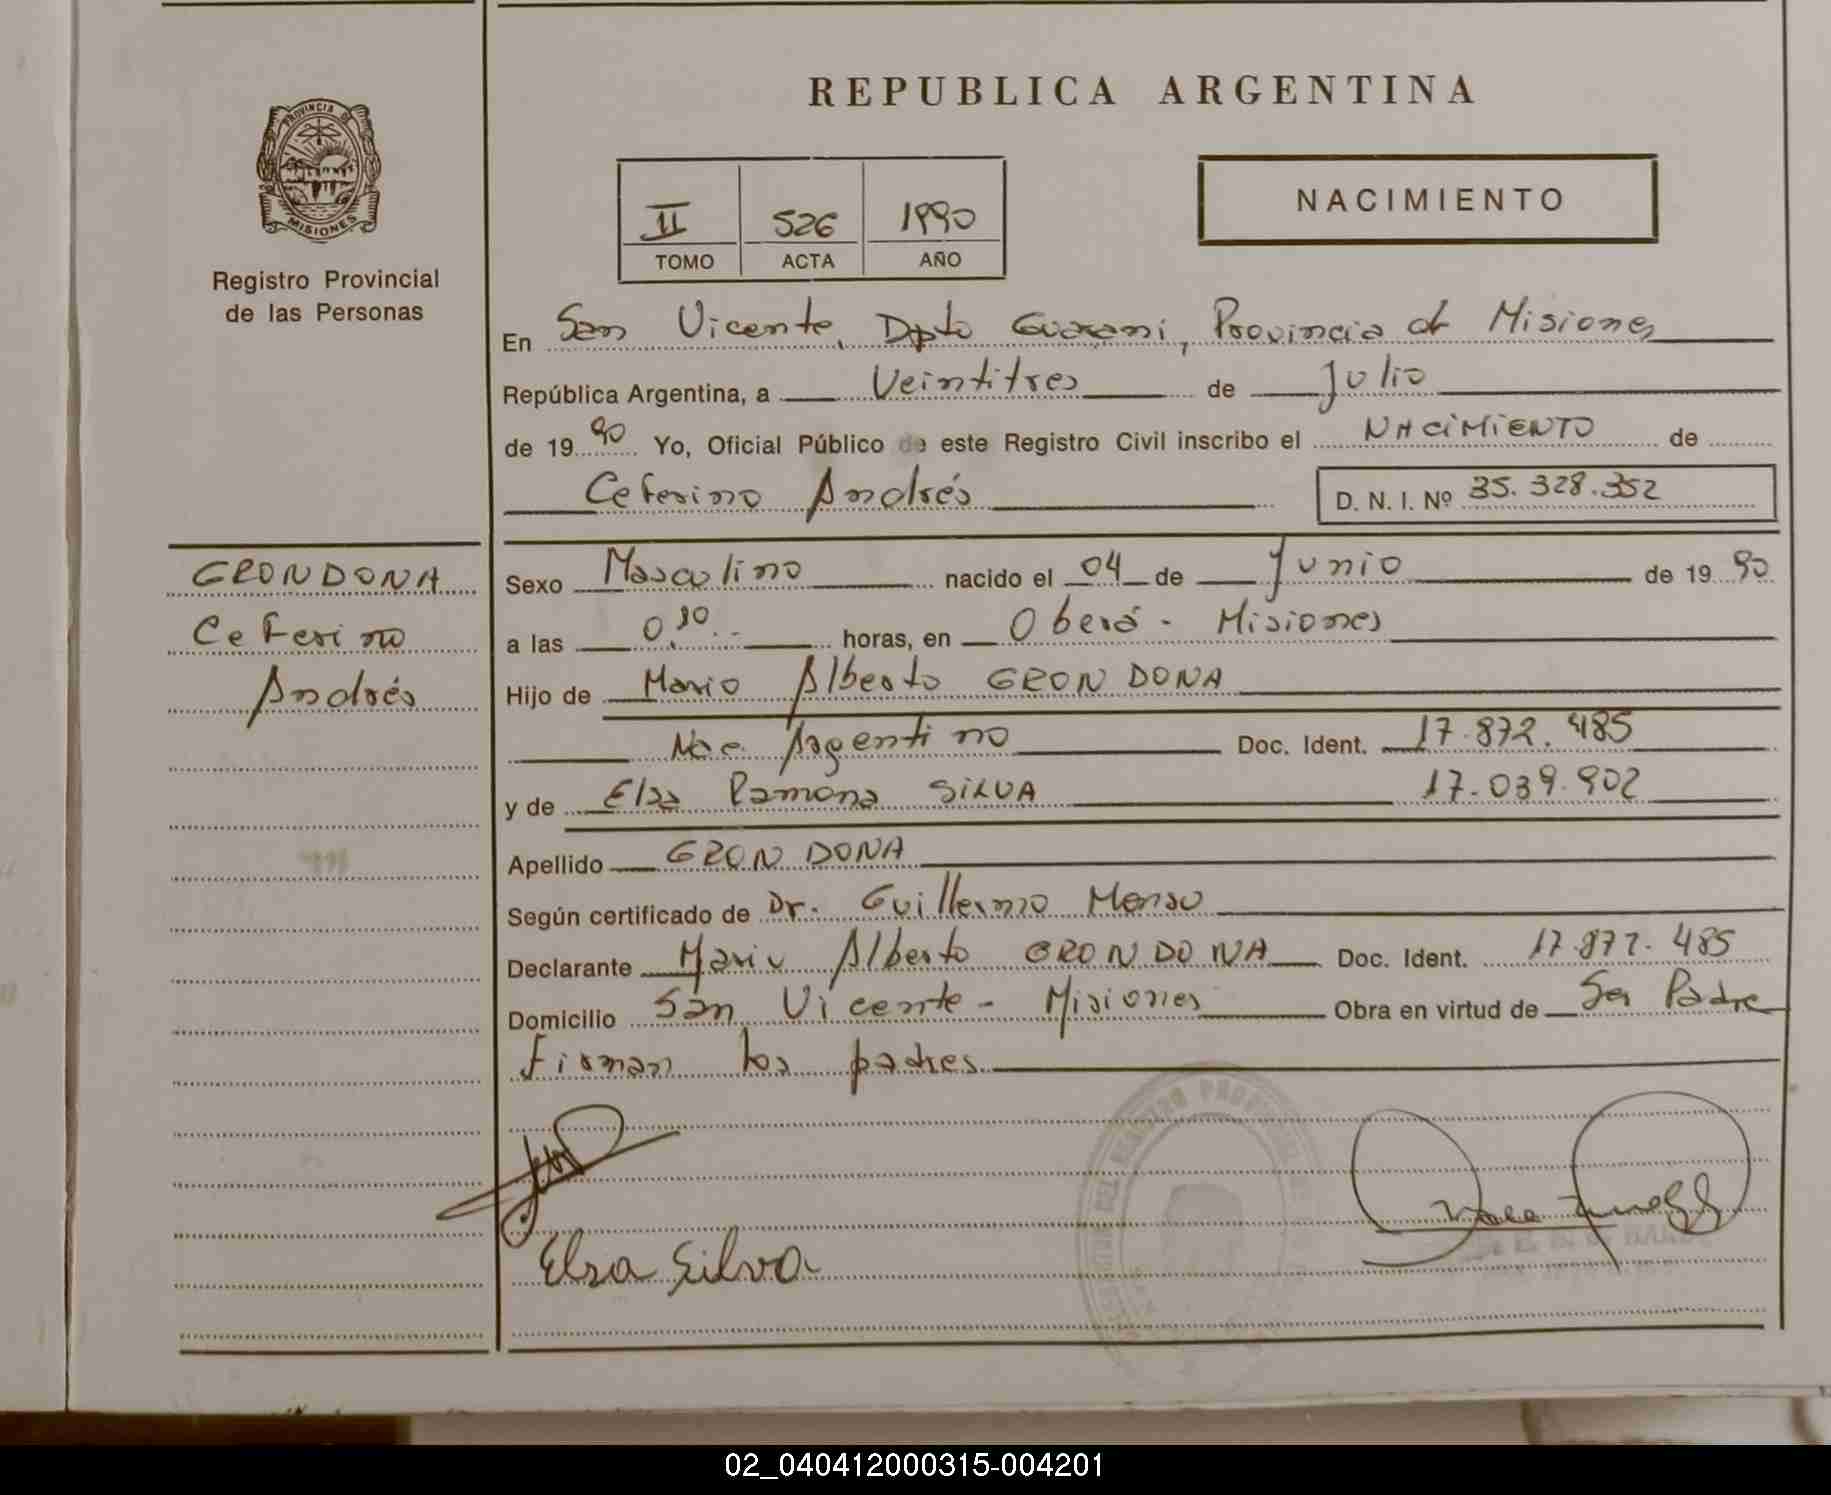 REPUBLICA ARGENTINA
PROVINCIA DE
MISIONES
Registro Provincial
de las Personas
II 526 1990
TOMO ACTA AÑO
NACIMIENTO
En San Vicente, Dpto Guarani, Provincia de Misiones
República Argentina, a Veintitres de Julio
de 1990 Yo, Oficial Público de este Registro Civil inscribo el NACIMIENTO de
Ceferino Andrés D. N. I. Nº 35.328.352
GRONDONA
Ceferino
Andrés
Sexo Masculino nacido el 04 de Junio de 1990
a las horas, en Oberá - Misiones
Hijo de Mario Alberto GRONDONA
Nac. Argentino Doc. Ident. 17.872.485
y de Elsa Ramona SILVA 17.039.902
Apellido GRONDONA
Según certificado de Dr. Guillermo
Declarante Mario Alberto GRONDONA Doc. Ident. 17.872.485
Domicilio San Vicente - Misiones Obra en virtud de Ser Padre
Firman los padres
Elsa Silva
02_040412000315-004201